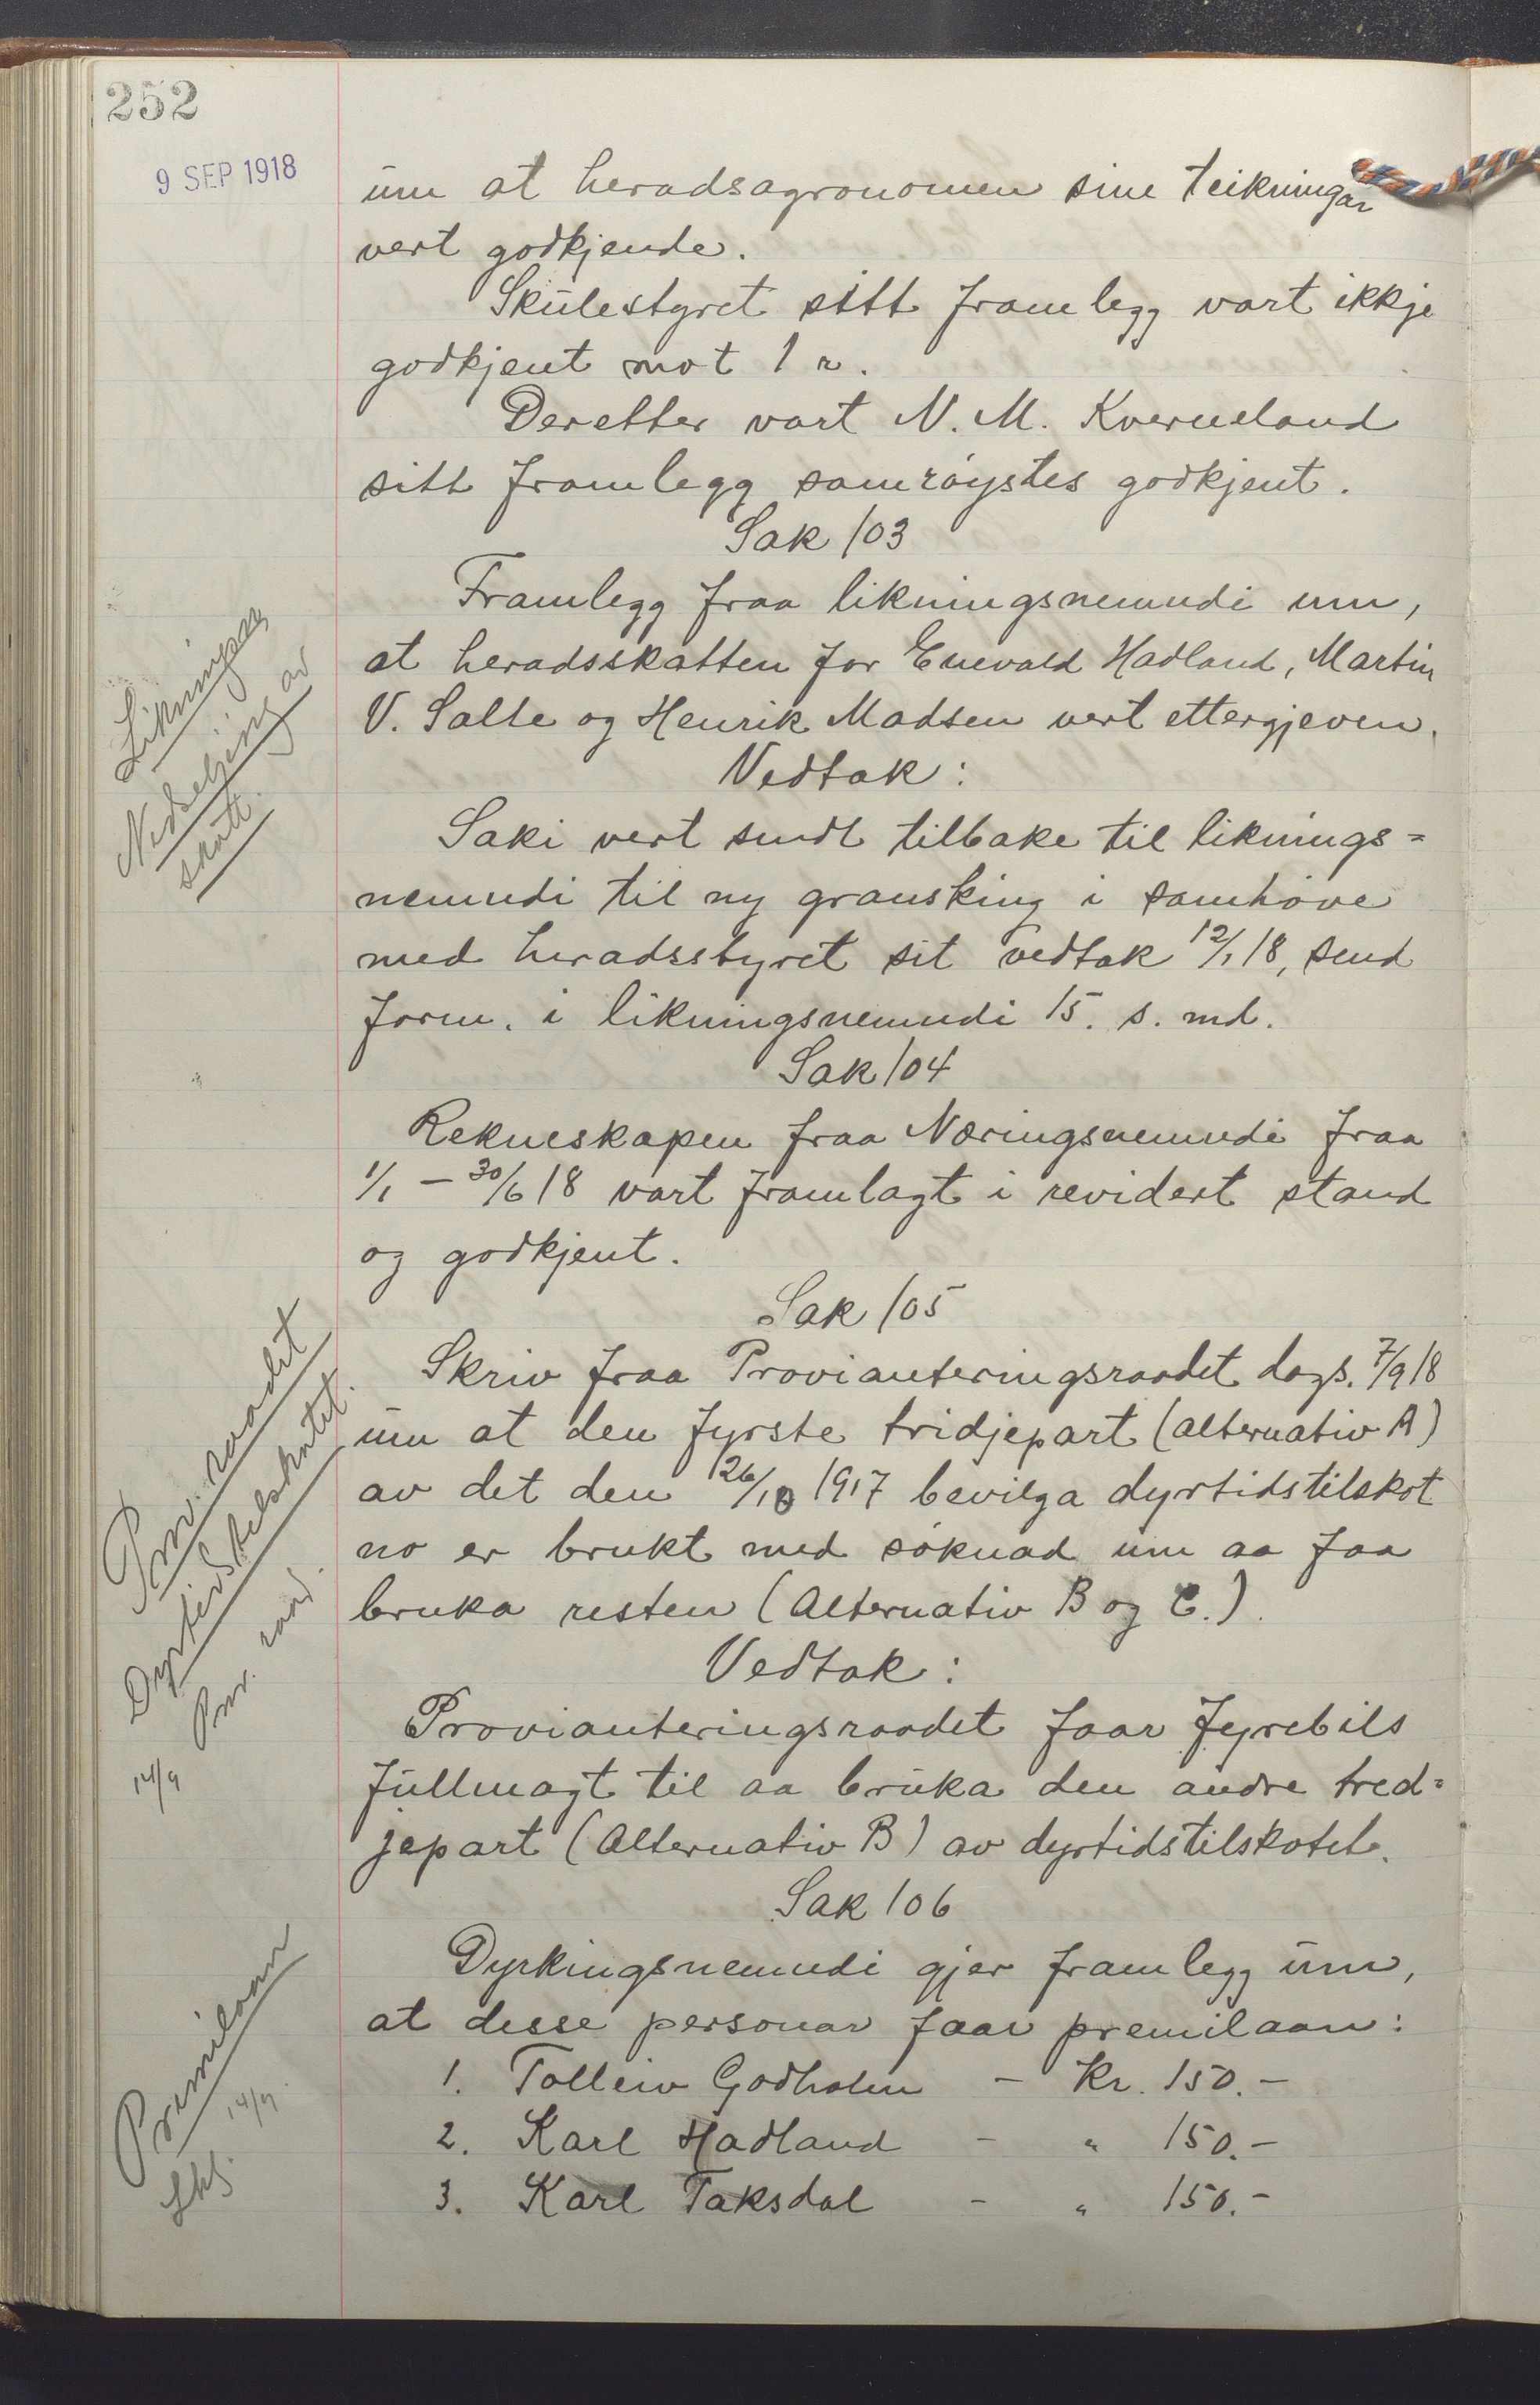 252
9 SEP 1918
um at heradsagronomen sine teikningar
vert godkjende.
Skulestyret sitt framlegg vart ikkje
godkjent mot 1 r.
Deretter vart N. M. Kverneland
sitt framlegg samrøystes godkjent.
Sak 103
Framlegg fraa likningsnemndi um,
at heradsskatten for Enevald Hadland, Martin
V. Salte og Henrik Madsen vert ettergjeven.
Vedtak:
Saki vert sendt tilbake til liknings=
nemndi til ny gransking i samhøve
med heradsstyret sit vedtak 12/1 18, send
form. i likningsnemndi 15. s. md.
Sak 104
Rekneskapen fraa Næringsnemndi fraa
1/1 - 30/6 18 vart framlagt i revidert stand
og godkjent.
Sak 105
Skriv fraa Provianteringsraadet dags. 7/9 18
um at den fyrste tridjepart (alternativ A)
av det den 26/10 1917 bevilga dyrtidstilskot
no er brukt med søknad um aa faa
bruka resten (Alternativ B og C.).
Vedtak:
Provianteringsraadet faar fyrebils
fullmagt til aa bruka den andre tred=
jepart (Alternativ B) av dyrtidstilskotet.
Sak 106
Dyrkingsnemndi gjer framlegg um,
at desse personar faar premilaan:
1. Tolleiv Godholm - Kr. 150.-
2. Karl Hadland - " 150.-
3. Karl Taksdal - " 150.-
Nedsetjing av
skatt.
Prov. raadet
Dyrtidstilskotet.
Prov. raad.
14/9
Premilaan
14/9.